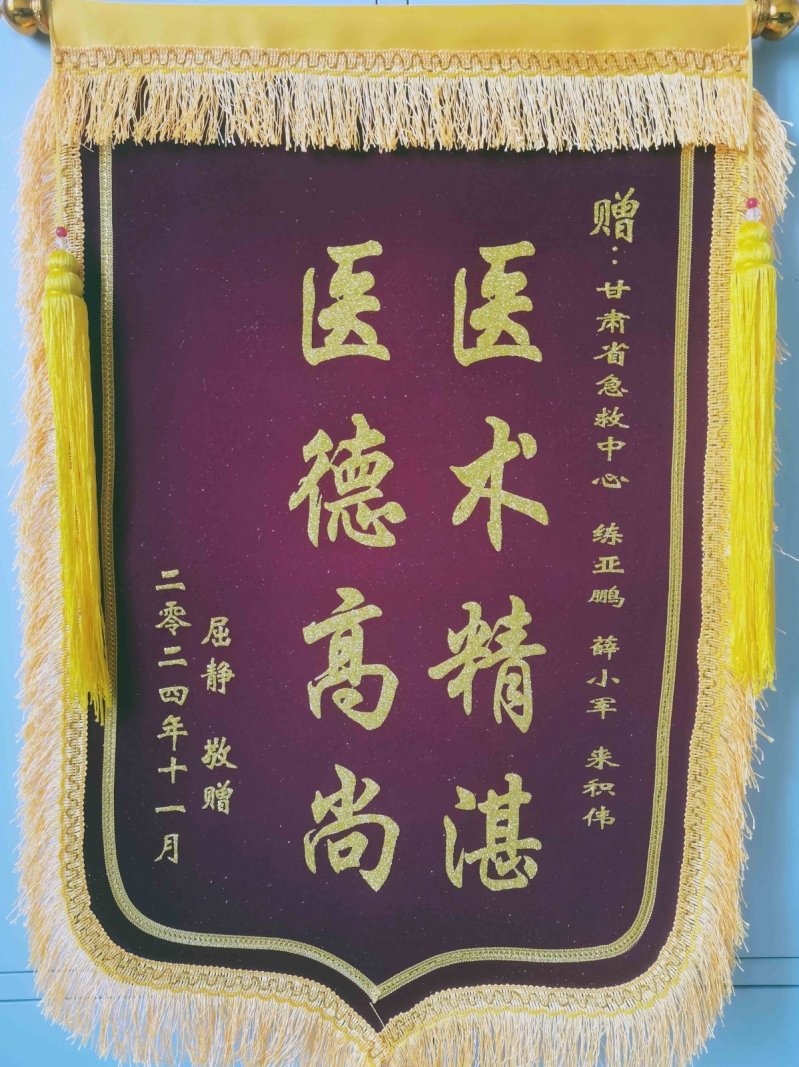 赠：甘肃省急救中心 练亚鹏 薛小军 来积伟
医术精湛
医德高尚
屈静 敬赠
二零二四年十一月